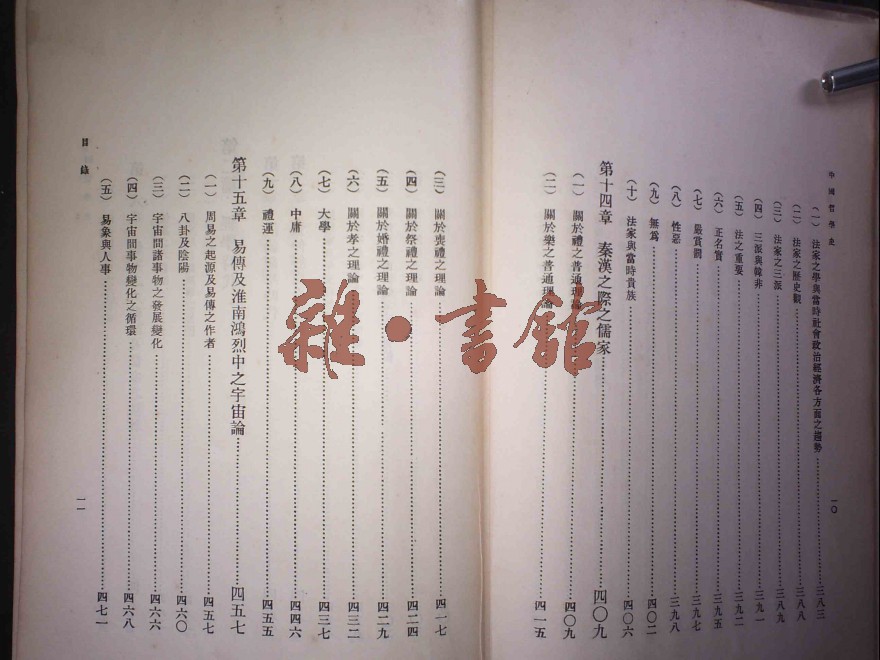 中國哲學史
（一）法家之學與當時社會政治經濟各方面之趨勢……三八三
（二）法家之歷史觀……三八八
（三）法家之三派……三八九
（四）三派與韓非……三九一
（五）法之重要……三九二
（六）正名實……三九五
（七）嚴賞罰……三九七
（八）性惡……三九八
（九）無爲……四〇二
（十）法家與當時貴族……四〇六
第十四章　秦漢之際之儒家……四〇九
（一）關於禮之普通理論……四〇九
（二）關於樂之普通理論……四一五
一〇
（三）關於喪禮之理論……四一七
（四）關於祭禮之理論……四二四
（五）關於婚禮之理論……四二九
（六）關於孝之理論……四三二
（七）大學……四三七
（八）中庸……四四六
（九）禮運……四五五
第十五章　易傳及淮南鴻烈中之宇宙論……四五七
（一）周易之起源及易傳之作者……四五七
（二）八卦及陰陽……四六〇
（三）宇宙間諸事物之發展變化……四六六
（四）宇宙間事物變化之循環……四六八
（五）易象與人事……四七一
目錄
一一
雜·書館